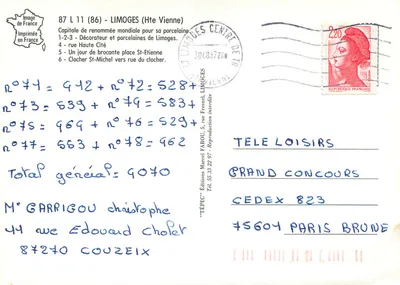 Image
de France
Imprimée
en France
87 L 11 (86) - LIMOGES (Hte Vienne)
Capitale de renommée mondiale pour sa porcelaine
1-2-3 - Décorateur et porcelaines de Limoges.
4 - rue Haute Cité
5 - Un jour de brocante place St-Etienne
6 - Clocher St-Michel vers rue du clocher.
n°71 = 912 + n°72 = 528 +
n°73 = 539 + n°74 = 583 +
n°75 = 969 + n°76 = 529 +
n°77 = 553 + n°78 = 962
Total général = 9070
Mr GARRIGOU christophe
44 rue Edouard Cholet
87270 COUZEIX
"TÉPIC" Éditions Marcel FAROU, 5, rue Ferrand, LIMOGES
Tél. 55 33 22 97 Reproduction interdite
LIMOGES CENTRE DE TRI
2,20
TELE LOISIRS
GRAND CONCOURS
CEDEX 823
75604 PARIS BRUNE